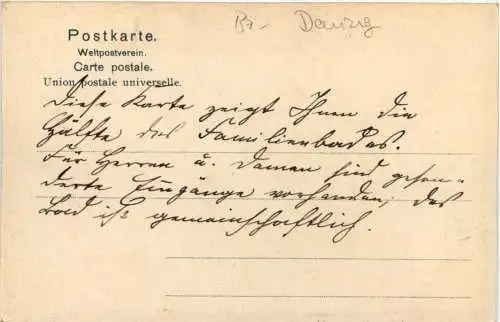 Br- Danzig
Postkarte.
Weltpostverein.
Carte postale.
Union postale universelle.
Diese Karte zeigt Ihnen die
Hälfte des Familienbades.
Für Herren u. Damen sind geson-
derte Eingänge vorhanden; das
Bad ist gemeinschaftlich.